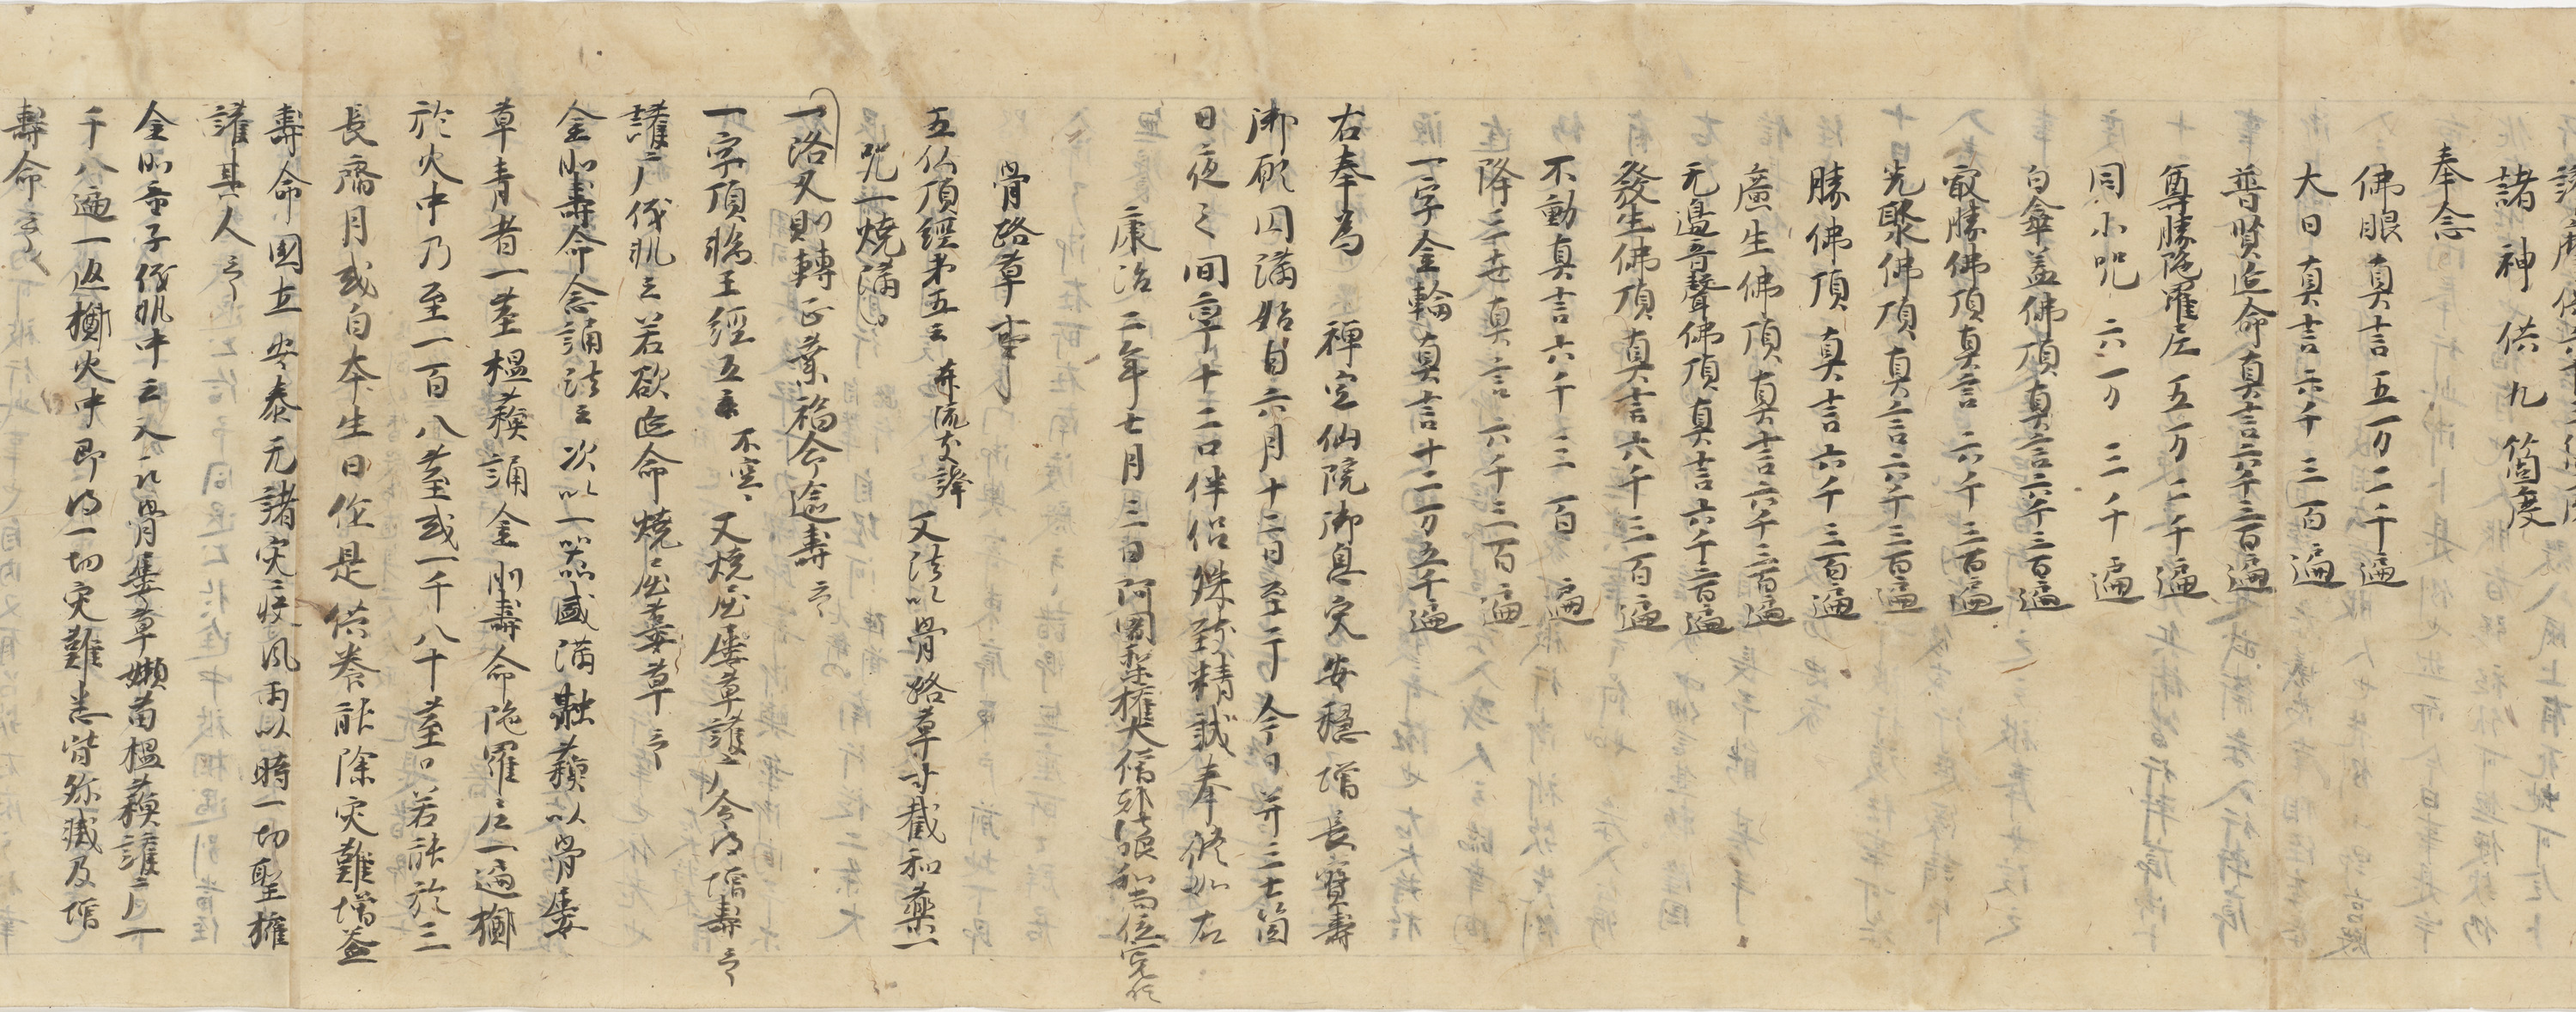 諸神供九箇度
奉念
佛眼真言五万二千遍
大日真言六千三百遍
普賢延命真言六千三百遍
尊勝陀羅尼五万二千遍
同小咒六一万三千遍
白傘蓋佛頂真言六千三百遍
最勝佛頂真言六千三百遍
光聚佛頂真言六千三百遍
勝佛頂真言六千三百遍
廣生佛頂真言六千三百遍
无邊音聲佛頂真言六千三百遍
發生佛頂真言六千三百遍
不動真言六千三百遍
降三世真言六千三百遍
一字金輪真言十二万五千遍
右奉為禅定仙院御息災安穏增長寶壽
御願圓満始自六月十二日至于今日并三七箇
日夜之間率十二口伴侶殊致精誠奉修如右
康治二年七月三日阿闍梨權大僧都法眼和尚位寛信
骨路草事
五仏頂經第五云 又法以骨路草寸截和藥一
咒一燒滿
一洛叉則轉正業福命延壽云々
一字頂輪王經五云不空 又燒屈屢草護摩令得增壽云々
護摩儀軌云若欲延命燒屈蔞草云々
金剛壽命念誦法云次以一器盛滿融蘇以骨屢
草青者一莖榲蘇誦金剛壽命陀羅尼一遍擲
於火中乃至一百八莖或一千八十莖若能於三
長齋月或自本生日作是供養能除災難增益
壽命國土安泰无諸災疫風雨以時一切聖權
護其人云々
金剛童子儀軌中云又以骨蔞草嫩苗榲蘇護摩一
千八遍一返擲火中即得一切災難悉皆殄滅及增
壽命云々